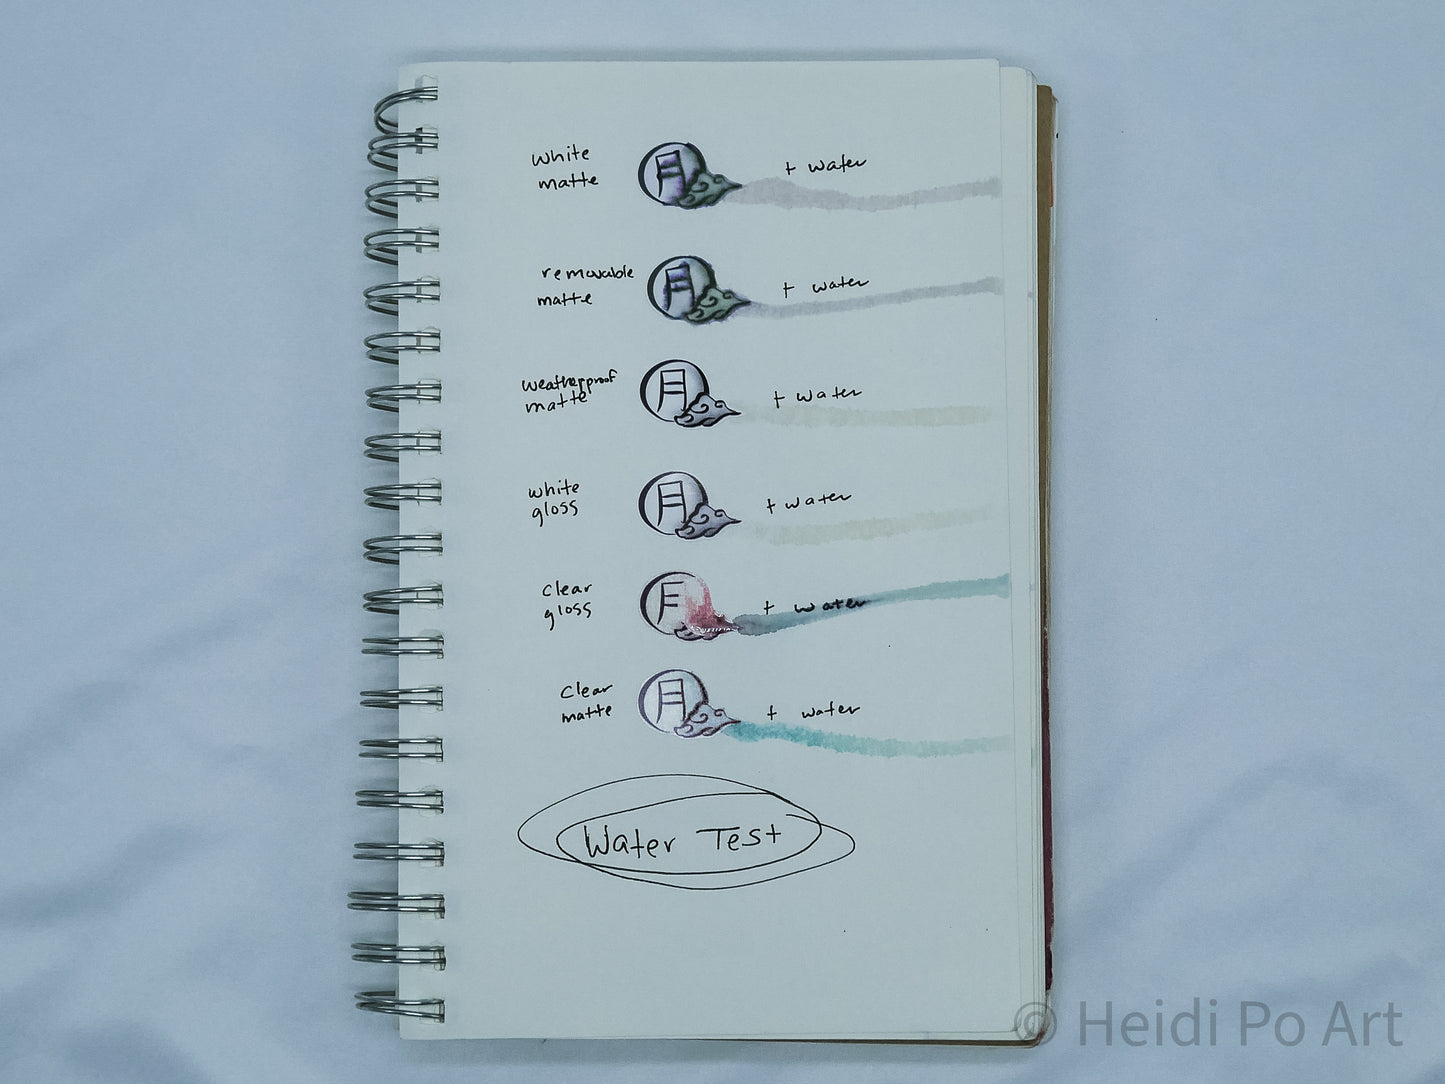 white
matte
月
+ water
removable
matte
月
+ water
weatherproof
matte
月
+ water
white
gloss
月
+ water
clear
gloss
月
+ water
clear
matte
月
+ water
Water Test
© Heidi Po Art